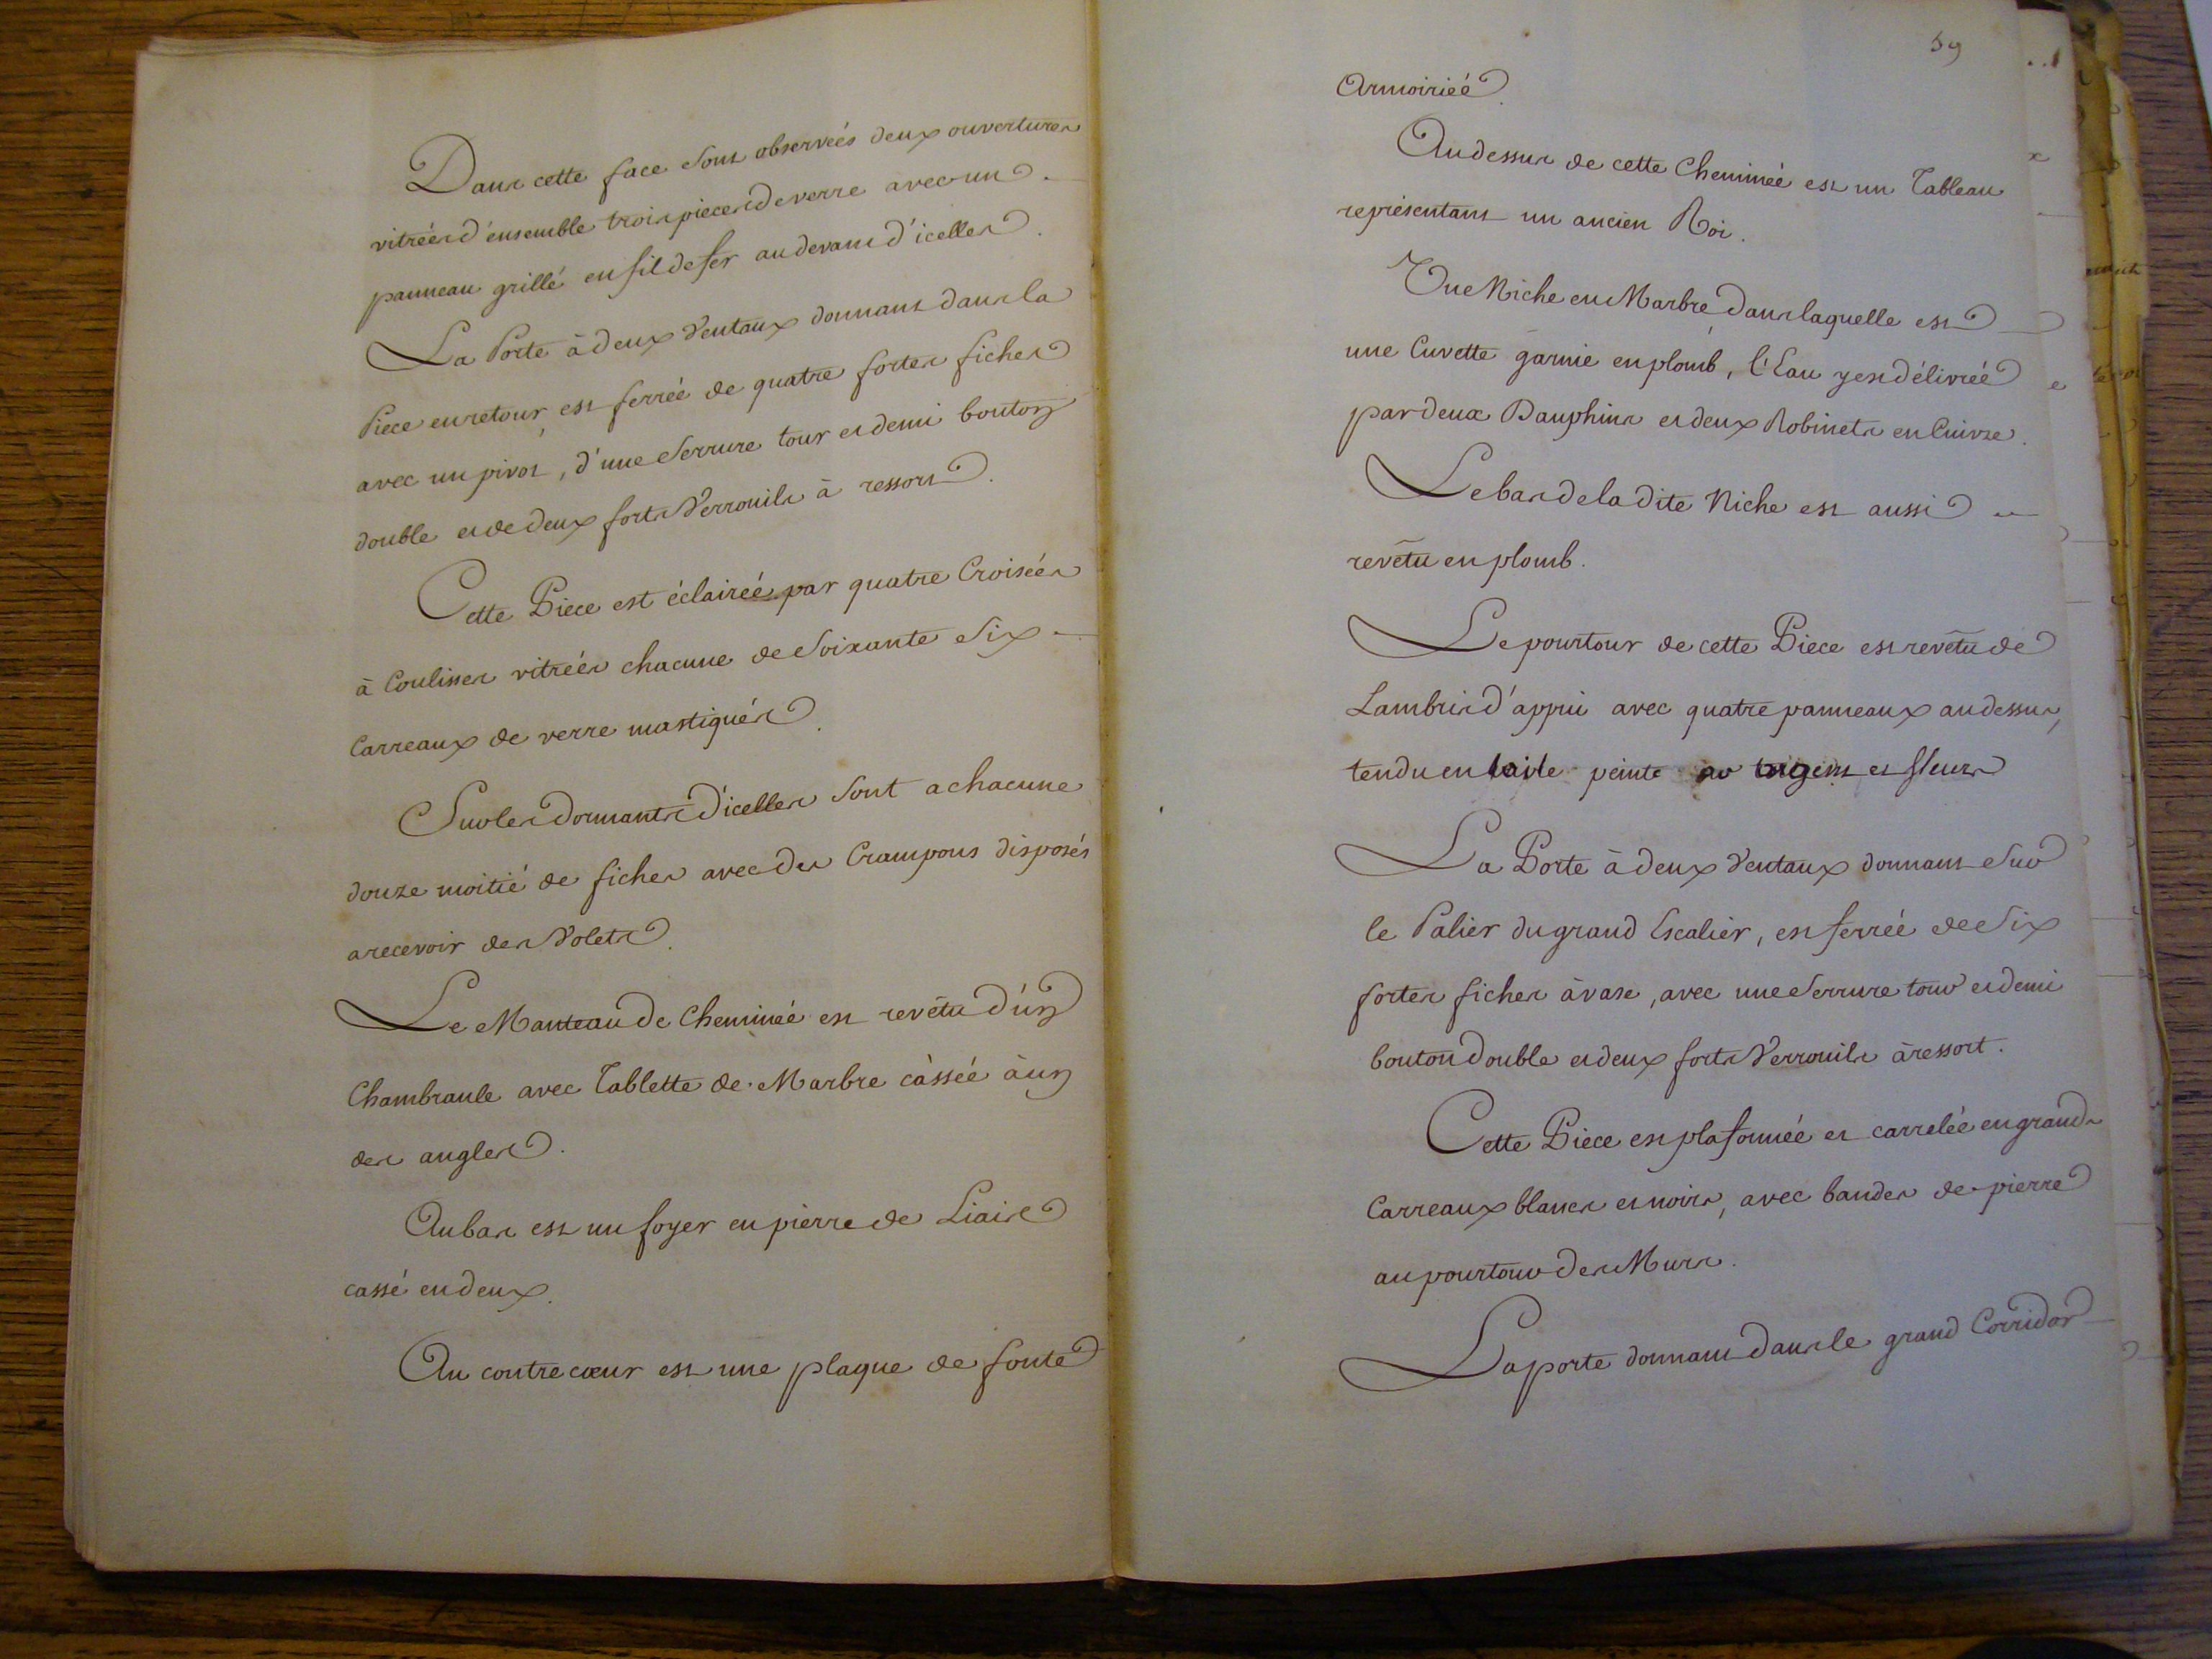 Dans cette face sont observeés deux ouvertures
vitreés d'ensemble trois pieces de verre avec un
panneau grillé en fil de fer au devant d'icelles.
La Porte à deux Ventaux donnant dans la
Piece en retour, est ferreé de quatre fortes fiches
avec un pivot, d'une Serrure tour et demi bouton
double et de deux forts Verrouils à ressort.
Cette Piece est éclaireé par quatre Croiseés
à Coulisses vitreés chacune de Soixante Six
Carreaux de verre mastiqués.
Sur les Dormants d'icelles Sont a chacune
douze moitié de fiches avec des Crampons disposés
a recevoir des Volets.
Le Manteau de Chemineé est revêtu d'un
Chambranle avec Tablette de Marbre casseé à un
des angles.
Au bas est un foyer en pierre de Liais
cassé en deux.
Au contrecœur est une plaque de fonte
59
Armoirieé.
Au dessus de cette Chemineé est un Tableau
représentant un ancien Roi.
Une Niche en Marbre, dans laquelle est
une Cuvette garnie en plomb, l'Eau y est délivreé
par deux Dauphins et deux Robinets en Cuivre.
Le bas de la dite Niche est aussi
revêtu en plomb.
Le pourtour de cette Piece est revêtu de
Lambris d'appui avec quatre panneaux au dessus,
tendu en toile peinte et fleurs
La Porte à deux Ventaux donnant Sur
le Palier du grand Escalier, est ferreé de Six
fortes fiches à vase, avec une Serrure tour et demi
bouton double et deux forts Verrouils à ressort.
Cette Piece est plafonneé et carreleé en grands
Carreaux blancs et noirs, avec bandes de pierre
au pourtour des Murs.
La porte donnant dans le grand Corridor